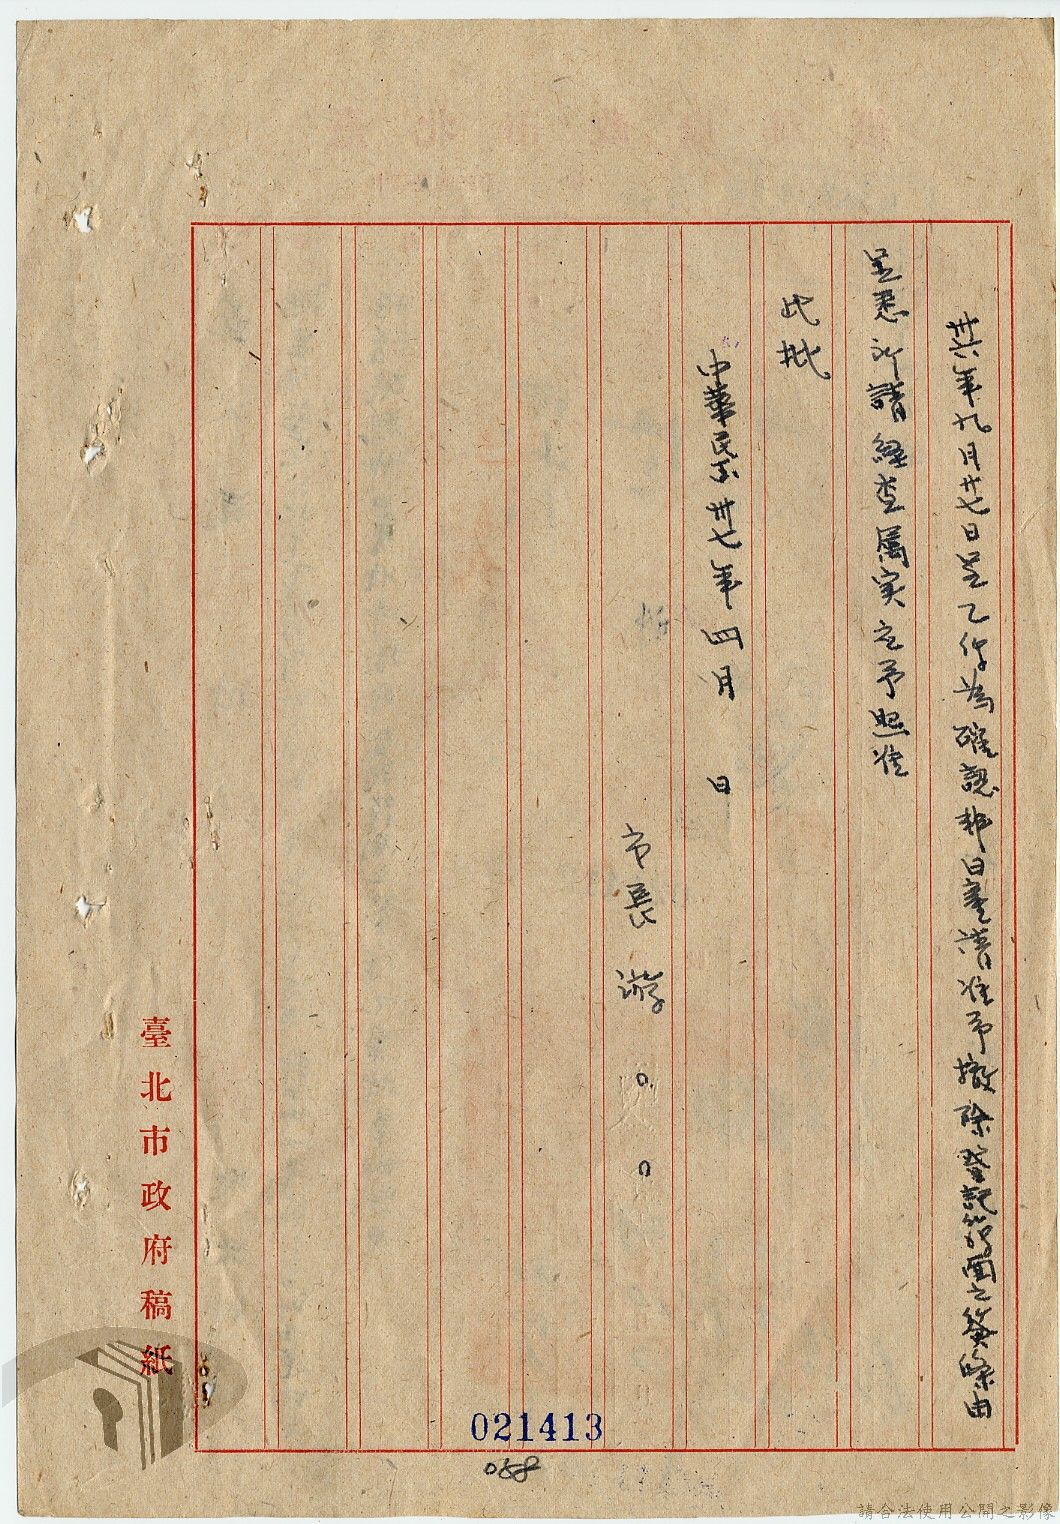 卅六年九月廿七日呈乙件為確認非日產請准予撤除登記簿面之簽條由
呈悉所請經查屬实应予照准
此批
中華民国卅七年四月 日
市長游○○
臺北市政府稿紙
021413
058
請合法使用公開之影像